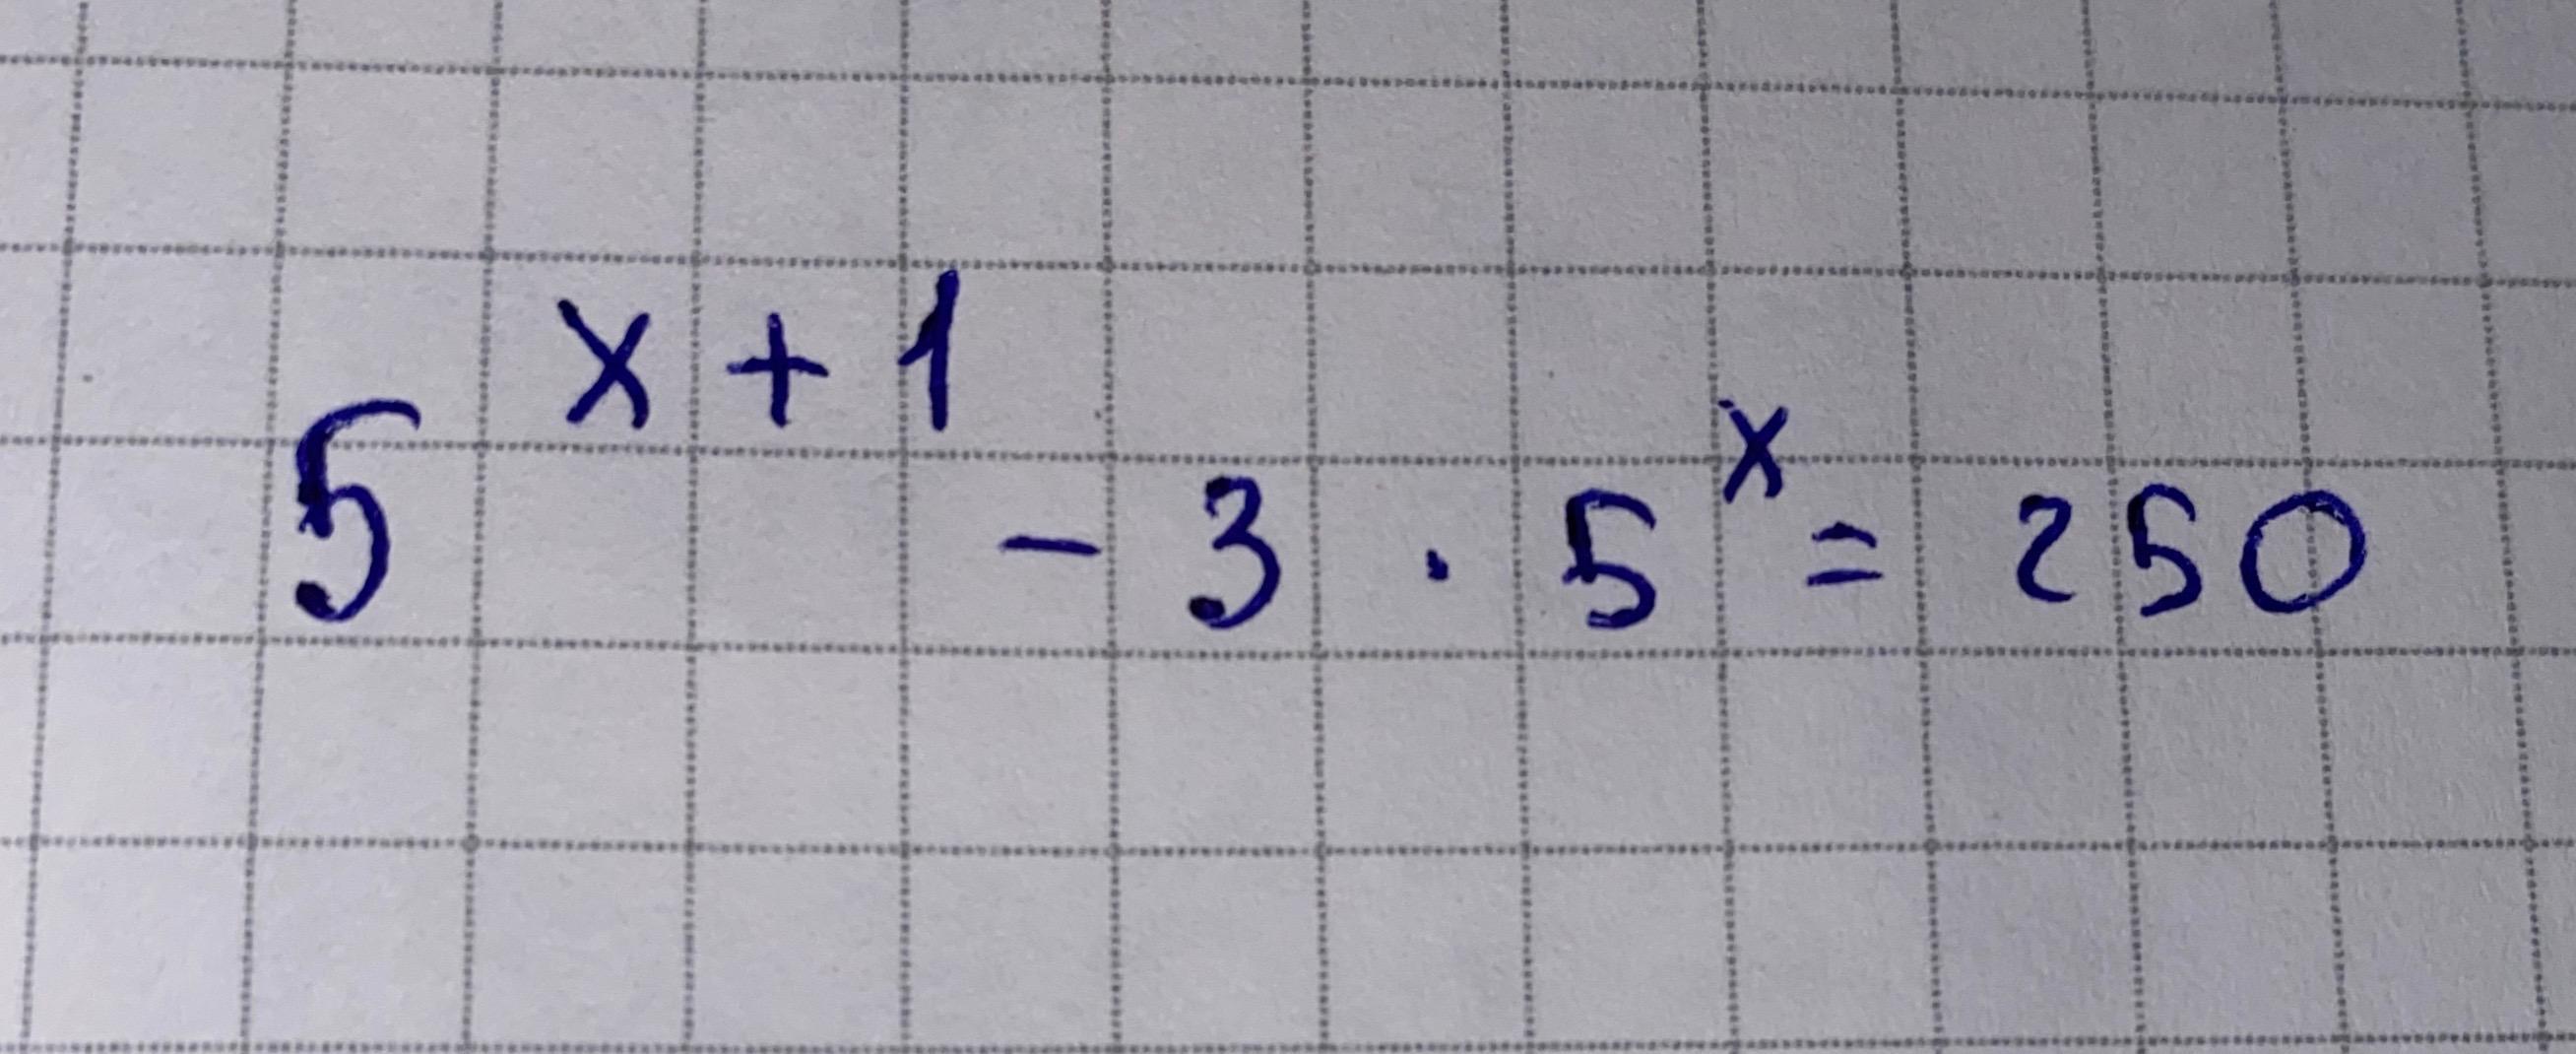 5^{x+1} - 3 · 5^x = 250